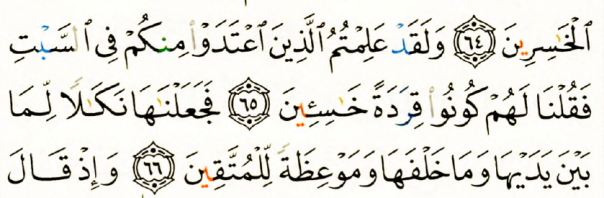 ٱلْخَٰسِرِينَ ٦٤ وَلَقَدْ عَلِمْتُمُ ٱلَّذِينَ ٱعْتَدَوْا۟ مِنكُمْ فِى ٱلسَّبْتِ
فَقُلْنَا لَهُمْ كُونُوا۟ قِرَدَةً خَٰسِـِٔينَ ٦٥ فَجَعَلْنَٰهَا نَكَٰلًا لِّمَا
بَيْنَ يَدَيْهَا وَمَا خَلْفَهَا وَمَوْعِظَةً لِّلْمُتَّقِينَ ٦٦ وَإِذْ قَالَ